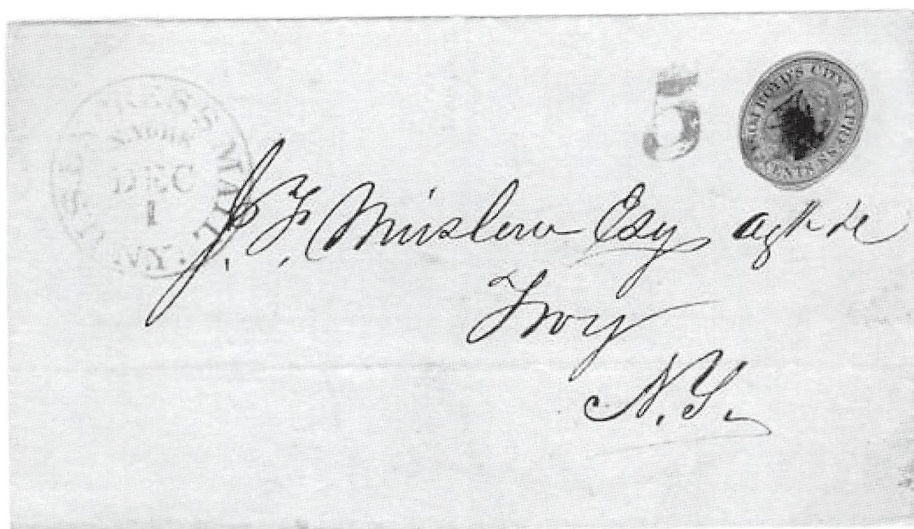 U.S. EXPRESS MAIL
DEC
1
N.Y.
5
BOYD'S CITY EXPRESS
CENTS
J. F. Winslow Esq
Troy
N.Y.